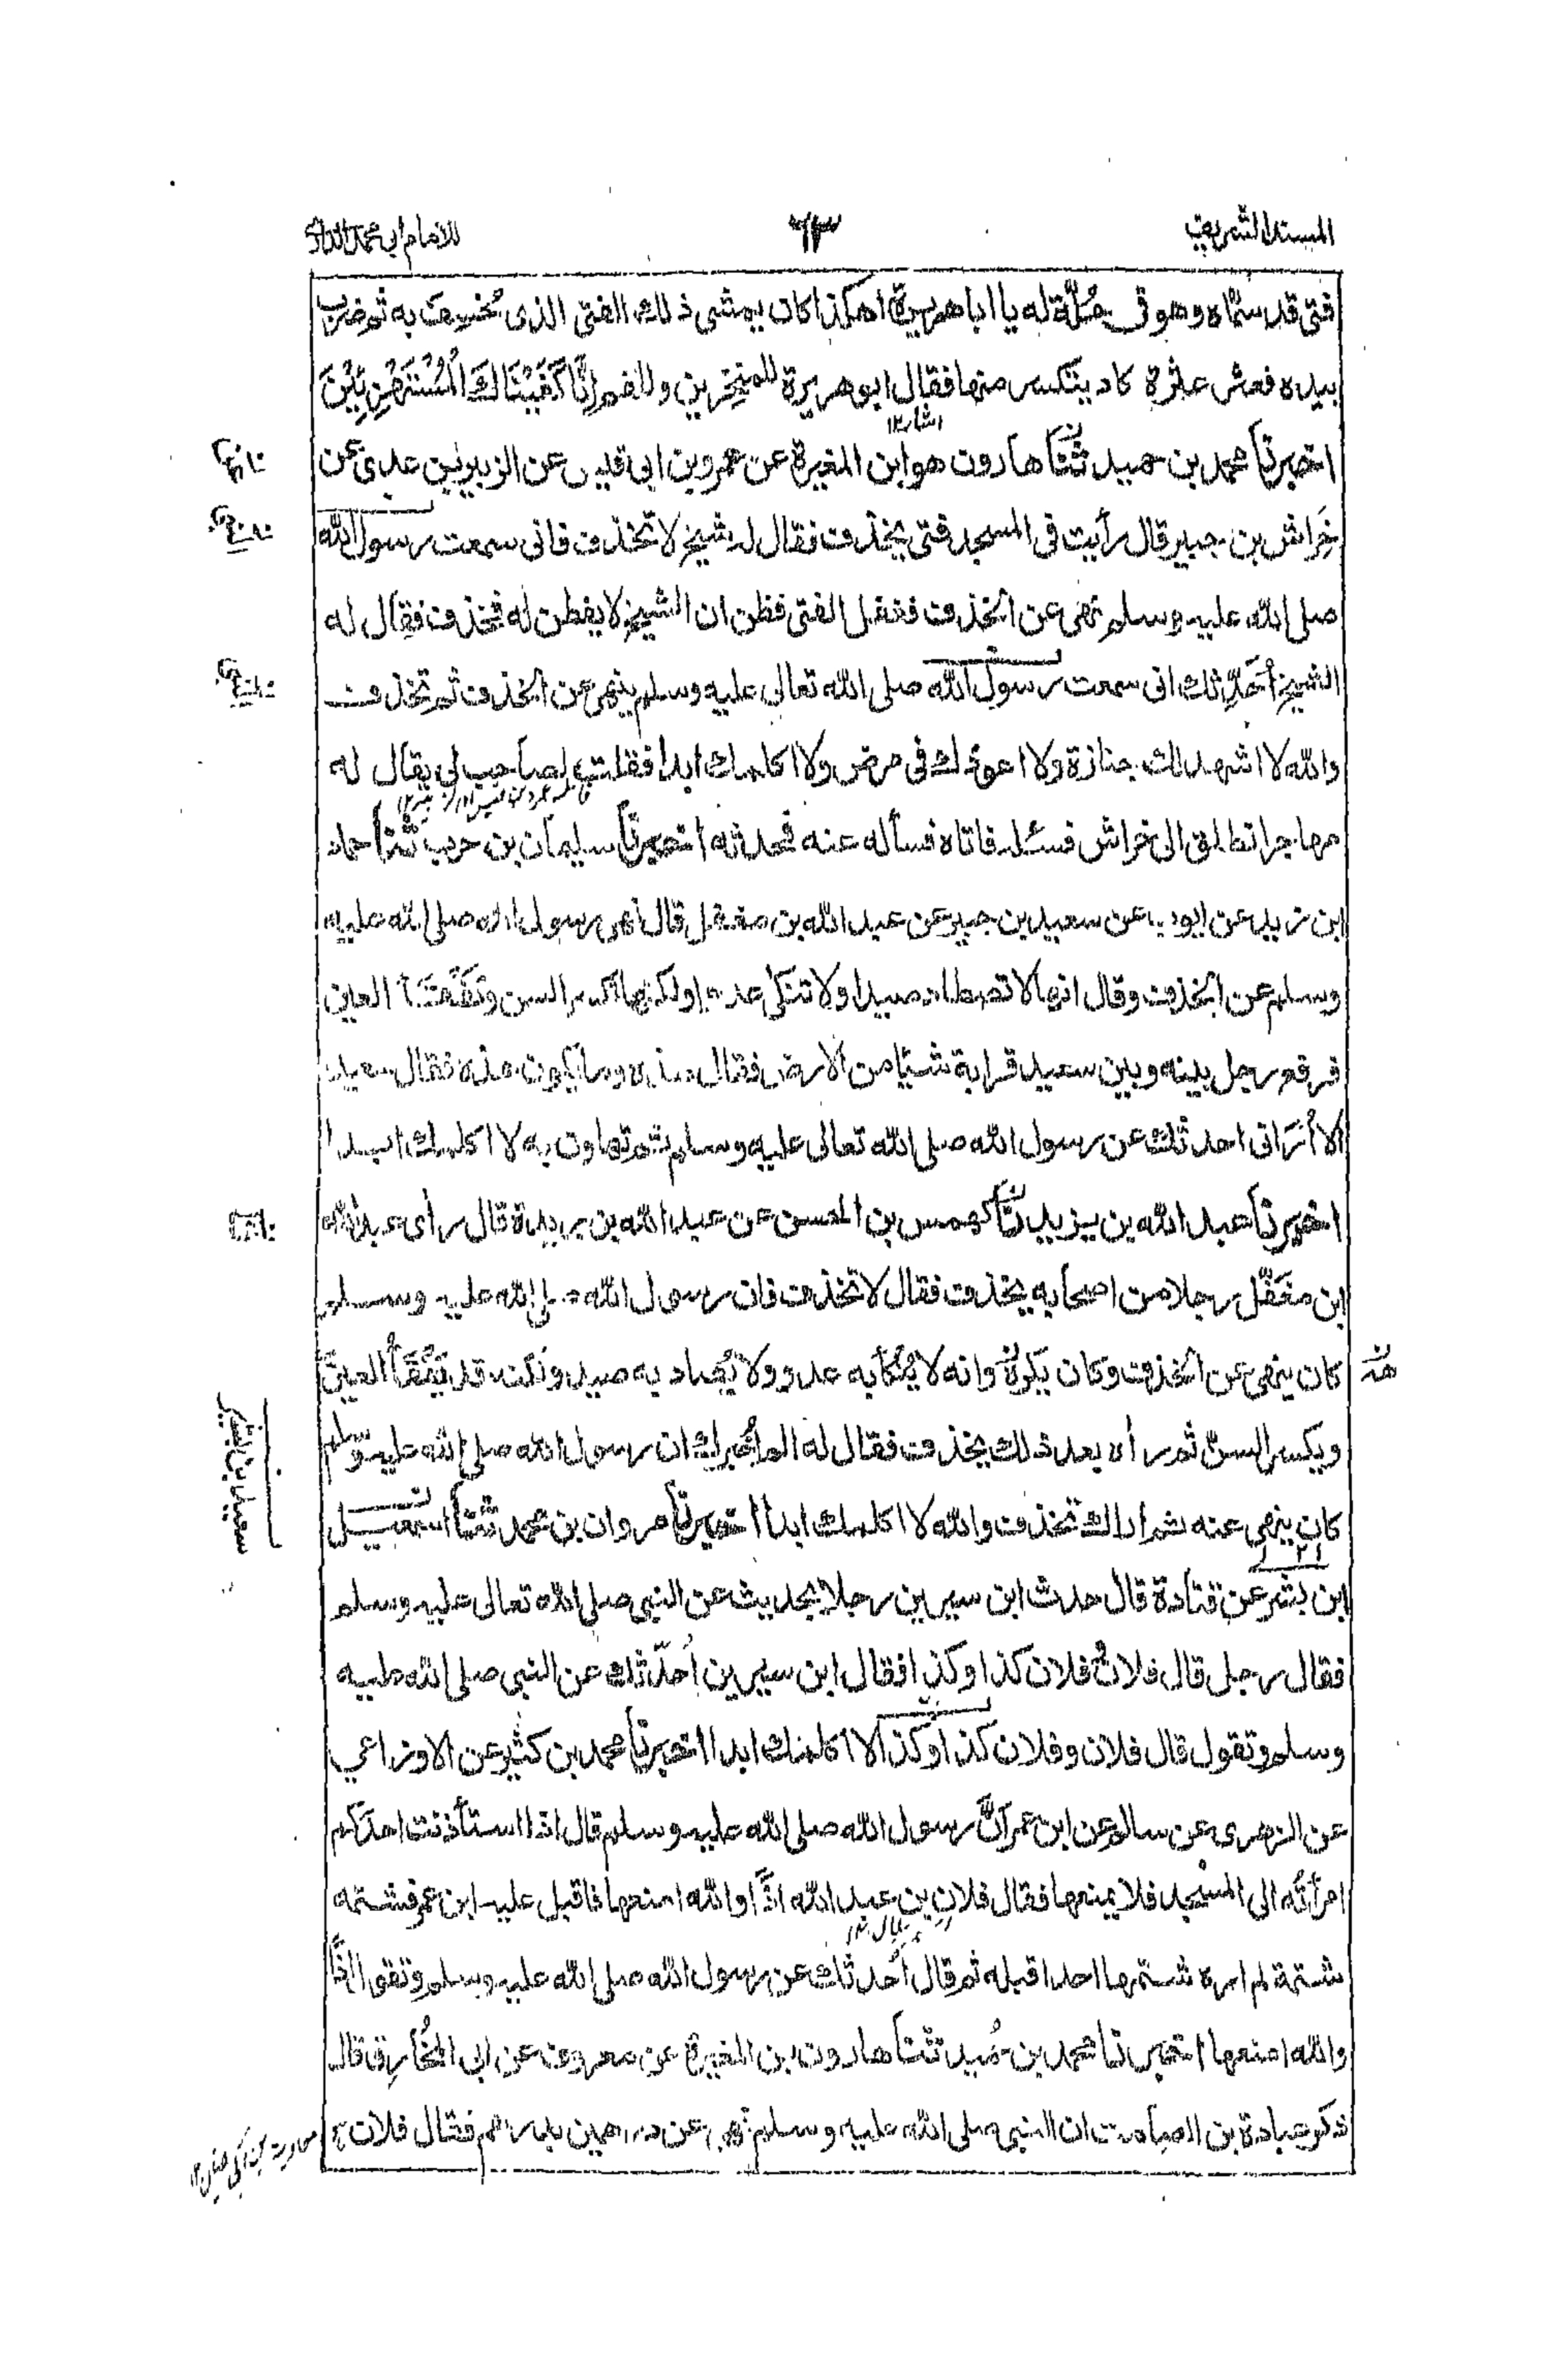 المسند الشريف ٦٣ للامام ابي محمد الدارمي
فتى قد سماه وهو في حُلّة له يا ابا هريرة اهكذا كان يمشي ذلك الفتى الذي خُسِفَ به ثم ضرب
بيده فعثر عثرة كاد يتكسر منها فقال ابو هريرة للمنخرين وللفم اِنَّا كَفَيْنَاكَ الْمُسْتَهْزِئِيْنَ
اخبرنا محمد بن حميد ثنا هارون هو ابن المغيرة عن عمرو بن ابي قيس عن الزبير بن عدي عن
خِراش بن جبير قال رأيت في المسجد فتى يخذف فقال له شيخ لا تخذف فاني سمعت رسول الله
صلى الله عليه وسلم نهى عن الخذف فغفل الفتى فظن ان الشيخ لا يفطن له فخذف فقال له
الشيخ أحدثك اني سمعت رسول الله صلى الله تعالى عليه وسلم ينهى عن الخذف ثم تخذف
والله لا اشهد لك جنازة ولا اعودك في مرض ولا اكلمك ابدا فقلت لصاحب لي يقال له
مهاجر انطلق الى خراش فسئله فاتاه فسأله عنه فحدثه اخبرنا سليمان بن حرب ثنا حماد
ابن زيد عن ايوب عن سعيد بن جبير عن عبد الله بن مغفل قال نهى رسول الله صلى الله عليه
وسلم عن الخذف وقال انها لا تصطاد صيدا ولا تنكئ عدوا ولكنها تكسر السن وتَفْقَأ العين
فرفع رجل بينه وبين سعيد قرابة شيئا من الارض فقال هذه وما يكون هذه فقال سعيد
الا أُراني احدثك عن رسول الله صلى الله تعالى عليه وسلم ثم تهاون به لا اكلمك ابدا
اخبرنا عبد الله بن يزيد ثنا كهمس بن الحسن عن عبد الله بن بريدة قال رأى عبد الله
ابن مغَفَّل رجلا من اصحابه يخذف فقال لا تخذف فان رسول الله صلى الله عليه وسلم
كان ينهى عن الخذف وكان يكرهه وانه لا يُنكأ به عدو ولا يُصاد به صيد ولكنه قد يَفْقَأُ العين
ويكسر السن ثم رأه بعد ذلك يخذف فقال له الم اُخبرك ان رسول الله صلى الله عليه وسلم
كان ينهى عنه ثم اراك تخذف والله لا اكلمك ابدا اخبرنا مروان بن محمد ثنا اسمعيل
ابن بشر عن قتادة قال حدث ابن سيرين رجلا بحديث عن النبي صلى الله تعالى عليه وسلم
فقال رجل قال فلان فلان كذا وكذا فقال ابن سيرين اُحدّثك عن النبي صلى الله عليه
وسلم وتقول قال فلان وفلان كذا وكذا لا اكلمك ابدا اخبرنا محمد بن كثير عن الاوزاعي
عن الزهري عن سالم عن ابن عمر اَنَّ رسول الله صلى الله عليه وسلم قال اذا استأذنت احدكم
امرأتُه الى المسجد فلا يمنعها فقال فلان بن عبد الله اذًا والله امنعها فاقبل عليه ابن عمر فشتمه
شتمة لم اره شتمها احدا قبله ثم قال اُحدثك عن رسول الله صلى الله عليه وسلم وتقول اذًا
والله امنعها اخبرنا محمد بن حُميد ثنا هارون بن المغيرة عن معروف عن ابي المُخارق قال
ذكر عبادة بن الصامت ان النبي صلى الله عليه وسلم نهى عن درهمين بدرهم فقال فلان
سعيد بن بشير